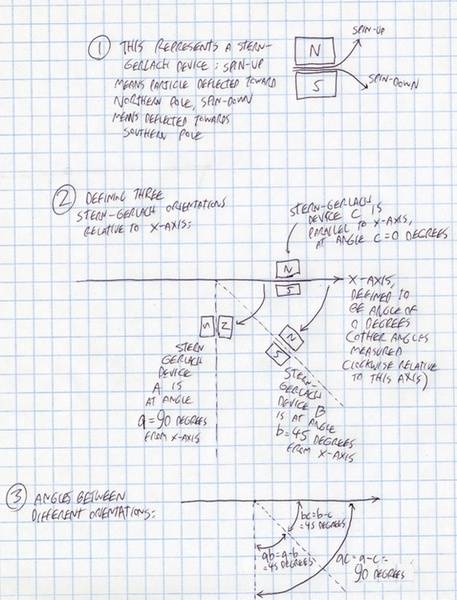 1 THIS REPRESENTS A STERN-
GERLACH DEVICE: SPIN-UP
MEANS PARTICLE DEFLECTED TOWARD
NORTHERN POLE, SPIN-DOWN
MEANS DEFLECTED TOWARDS
SOUTHERN POLE
N
S
SPIN-UP
SPIN-DOWN
2 DEFINING THREE
STERN-GERLACH ORIENTATIONS
RELATIVE TO X-AXIS:
STERN-GERLACH
DEVICE C IS
PARALLEL TO X-AXIS,
AT ANGLE C=0 DEGREES
N
S
X-AXIS,
DEFINED TO
BE ANGLE OF
0 DEGREES
(OTHER ANGLES
MEASURED
CLOCKWISE RELATIVE
TO THIS AXIS)
S N
STERN
GERLACH
DEVICE
A IS
AT ANGLE
a=90 DEGREES
FROM X-AXIS
N
S
STERN-
GERLACH
DEVICE B
IS AT ANGLE
b=45 DEGREES
FROM X-AXIS
3 ANGLES BETWEEN
DIFFERENT ORIENTATIONS:
bc=b-c
=45 DEGREES
ab=a-b
=45 DEGREES
ac=a-c=
90 DEGREES